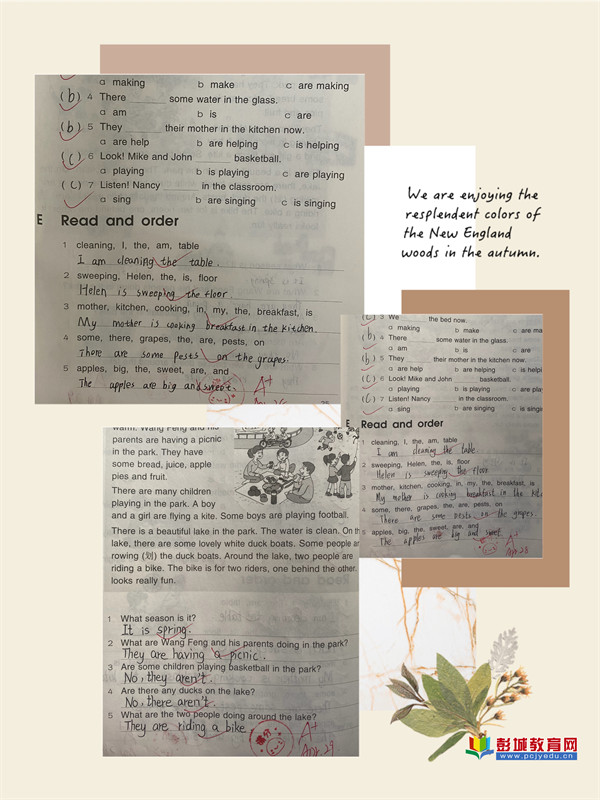 a making b make c are making
(b) 4 There ______ some water in the glass.
a am b is c are
(b) 5 They ______ their mother in the kitchen now.
a are help b are helping c is helping
(c) 6 Look! Mike and John ______ basketball.
a playing b is playing c are playing
(c) 7 Listen! Nancy ______ in the classroom.
a sing b are singing c is singing
E Read and order
1 cleaning, I, the, am, table
I am cleaning the table.
2 sweeping, Helen, the, is, floor
Helen is sweeping the floor.
3 mother, kitchen, cooking, in, my, the, breakfast, is
My mother is cooking breakfast in the kitchen.
4 some, there, grapes, the, are, pests, on
There are some pests on the grapes.
5 apples, big, the, sweet, are, and
The apples are big and sweet.
A+
We are enjoying the
resplendent colors of
the New England
woods in the autumn.
(c) 3 We ______ the bed now.
a making b make c are ma
(b) 4 There ______ some water in the glass.
a am b is c are
(b) 5 They ______ their mother in the kitchen now.
a are help b are helping c is helpi
(c) 6 Look! Mike and John ______ basketball.
a playing b is playing c are play
(c) 7 Listen! Nancy ______ in the classroom.
a sing b are singing c is singin
E Read and order
1 cleaning, I, the, am, table
I am cleaning the table.
2 sweeping, Helen, the, is, floor
Helen is sweeping the floor
3 mother, kitchen, cooking, in, my, the, breakfast, is
My mother is cooking breakfast in the kit
4 some, there, grapes, the, are, pests, on
There are some pests on the grapes.
5 apples, big, the, sweet, are, and
The apples are big and sweet.
A+
Apr.28
warm. Wang Feng and his
parents are having a picnic
in the park. They have
some bread, juice, apple
pies and fruit.
There are many children
playing in the park. A boy
and a girl are flying a kite. Some boys are playing football.
There is a beautiful lake in the park. The water is clean. On th
lake, there are some lovely white duck boats. Some people ar
rowing (划) the duck boats. Around the lake, two people are
riding a bike. The bike is for two riders, one behind the other.
looks really fun.
1 What season is it?
It is spring.
2 What are Wang Feng and his parents doing in the park?
They are having a picnic.
3 Are some children playing basketball in the park?
No, they aren't.
4 Are there any ducks on the lake?
No, there aren't.
5 What are the two people doing around the lake?
They are riding a bike
A+
Apr.29
彭城教育网
www.pcjyedu.cn